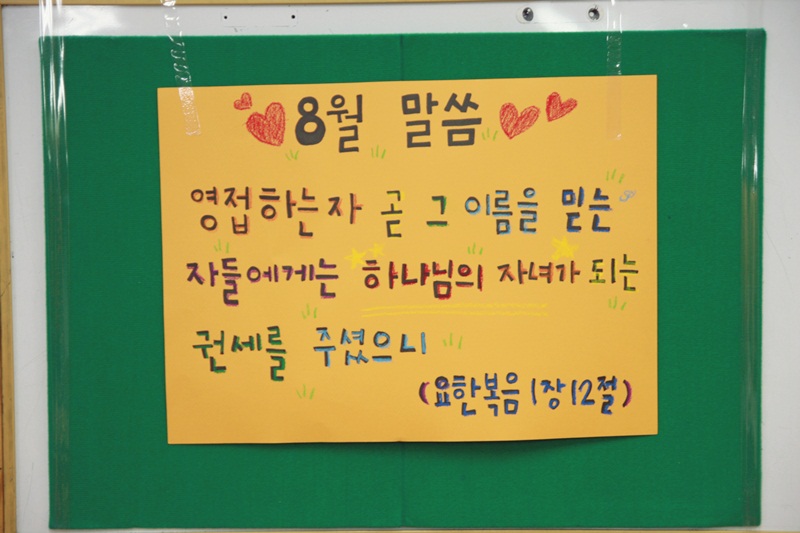 8월 말씀
영접하는자 곧 그 이름을 믿는
자들에게는 하나님의 자녀가 되는
권세를 주셨으니
(요한복음 1장 12절)